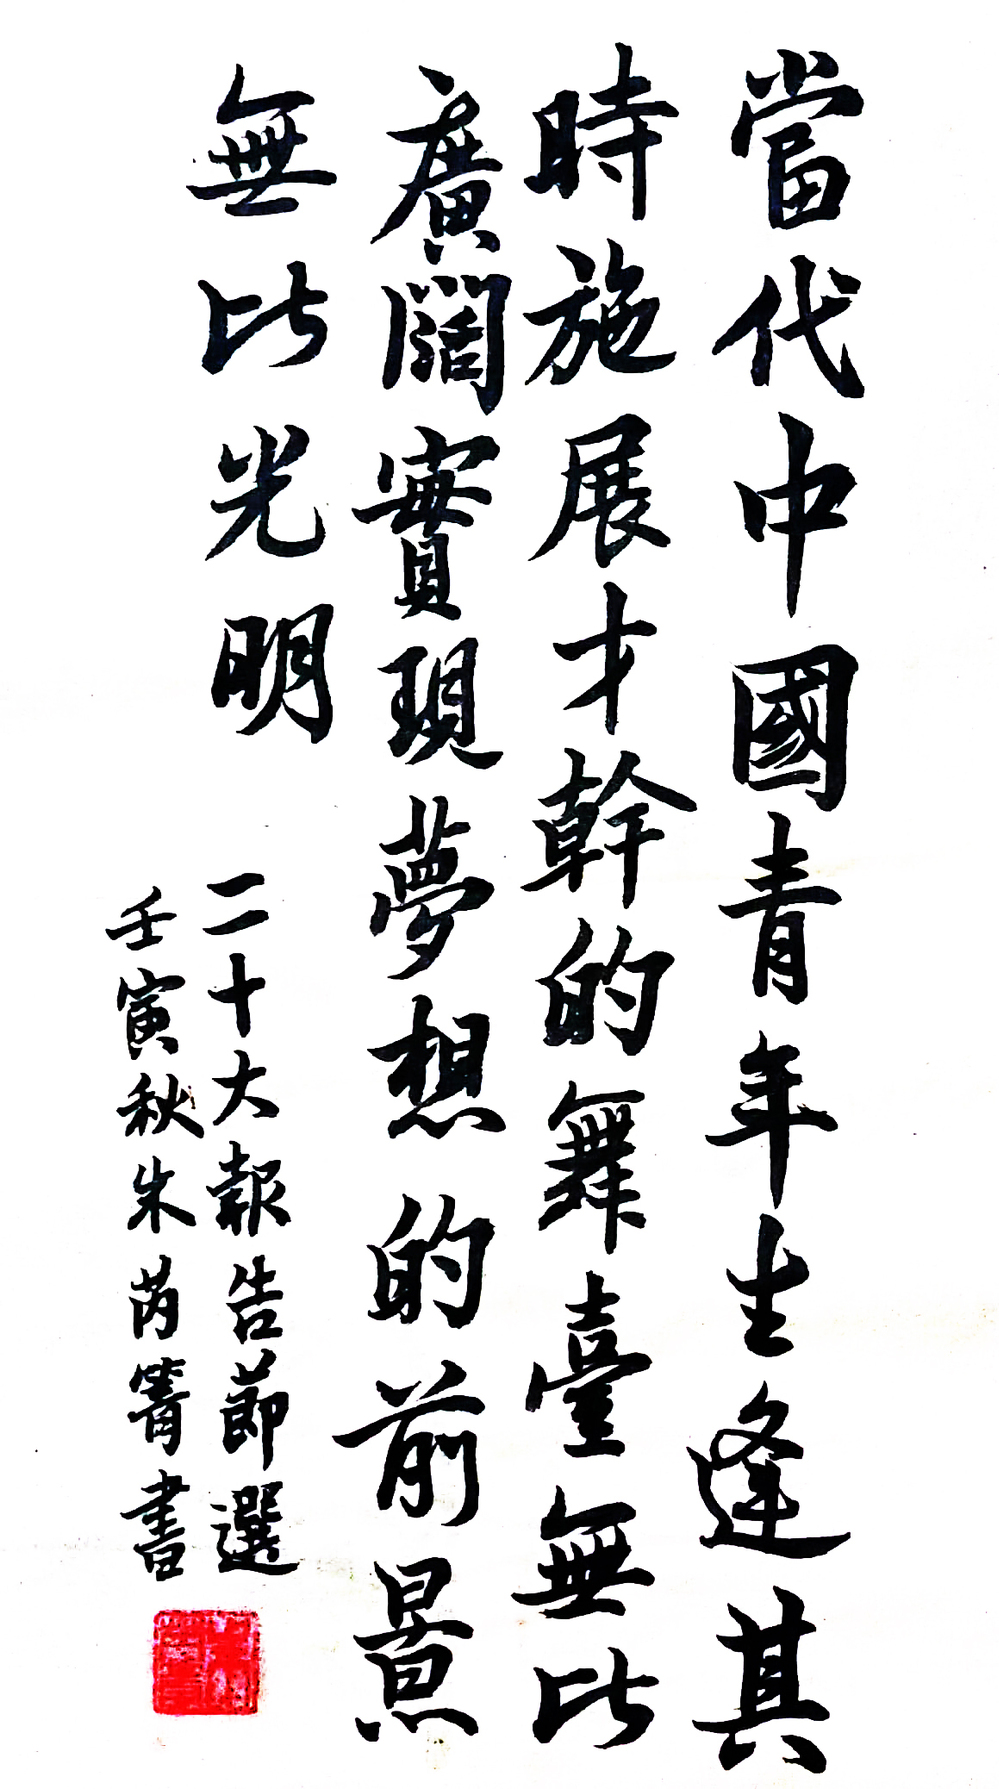 當代中國青年生逢其
時施展才幹的舞臺無比
廣闊實現夢想的前景
無比光明
二十大報告節選
壬寅秋朱芮箐書